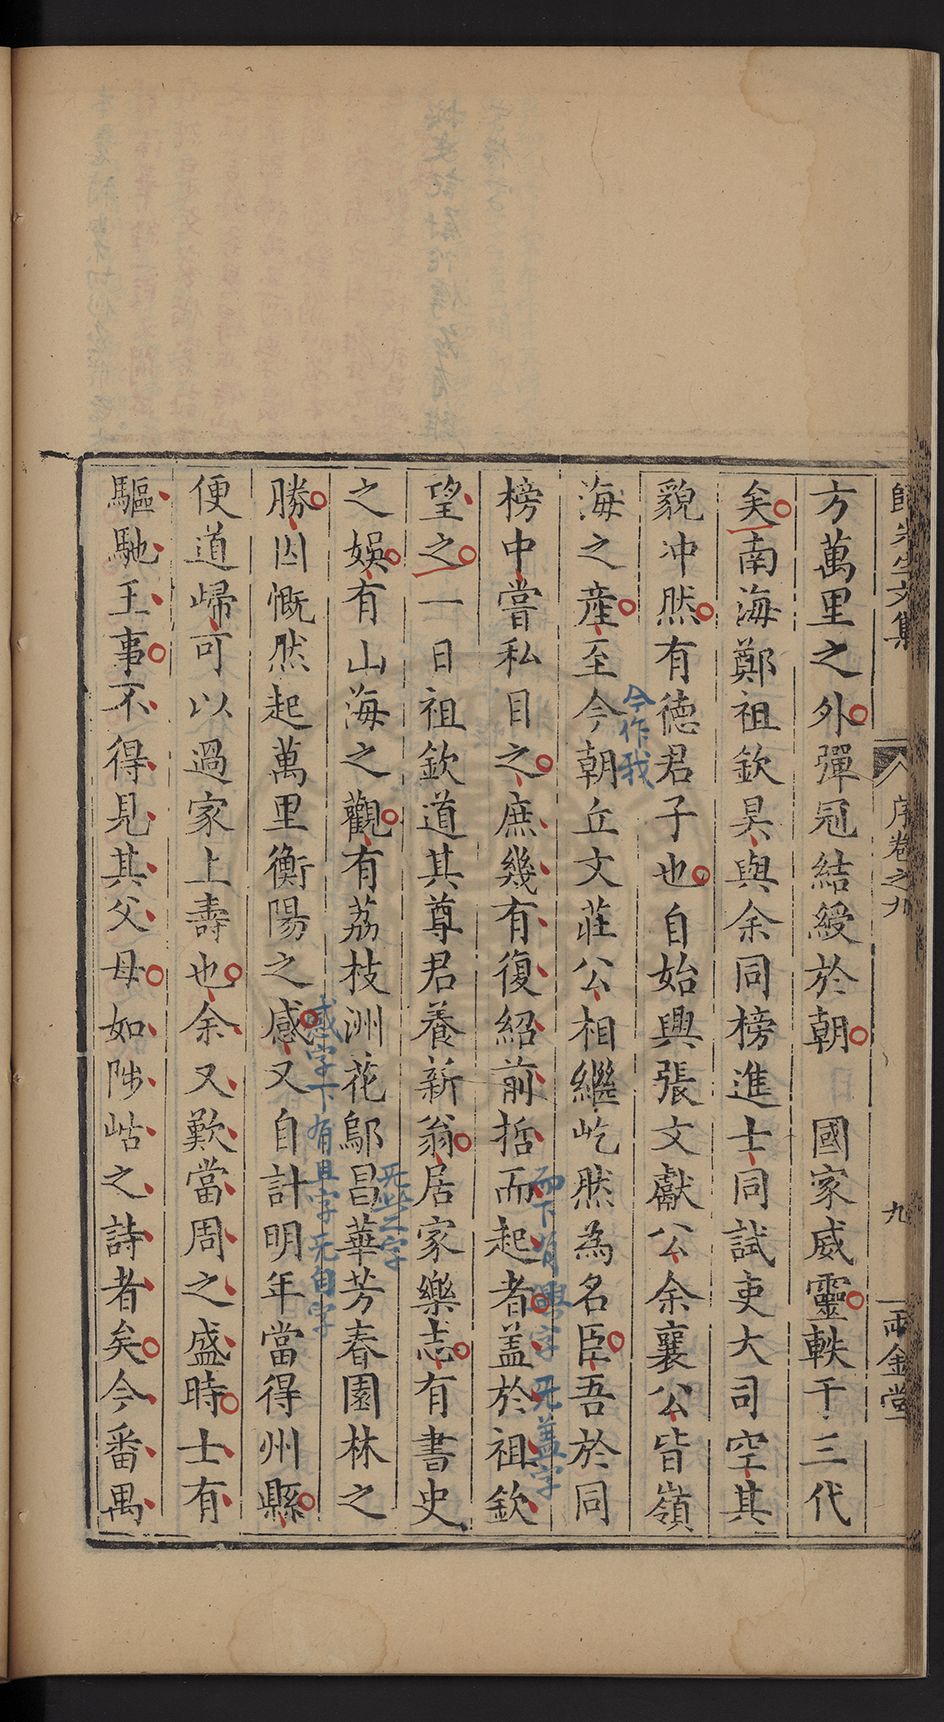 方萬里之外彈冠結綬於朝　國家威靈軼于三代
矣南海鄭祖欽昊與余同榜進士同試吏大司空其
貌冲然有德君子也自始興張文獻公余襄公皆嶺
海之產至今朝丘文莊公相繼屹然為名臣吾於同
今作我
榜中嘗私目之庶幾有復紹前哲而起者盖於祖欽
而下有興字 无盖字
望之一日祖欽道其尊君養新翁居家樂志有書史
之娛有山海之觀有荔枝洲花鄔昌華芳春園林之
无
字
勝因慨然起萬里衡陽之感又自計明年當得州縣
感字下有且字 无自字
便道歸可以過家上壽也余又歎當周之盛時士有
驅馳王事不得見其父母如陟岵之詩者矣今番禺
先生文集
序卷之九
九
兩金堂